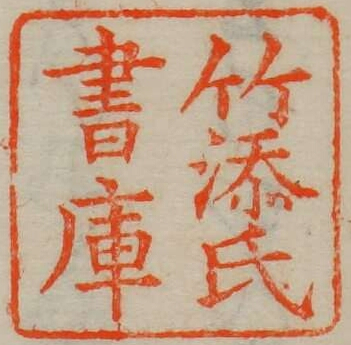 竹添氏
書庫